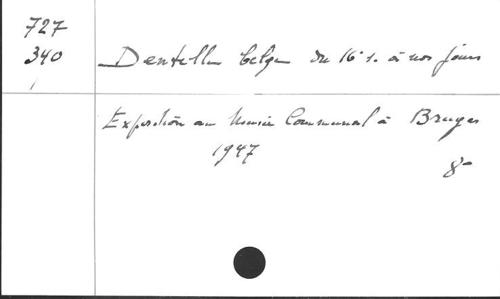 727
340
Dentelle belge du 16 s. à nos jours
Exposition au Musée Communal à Bruges
1947
8°